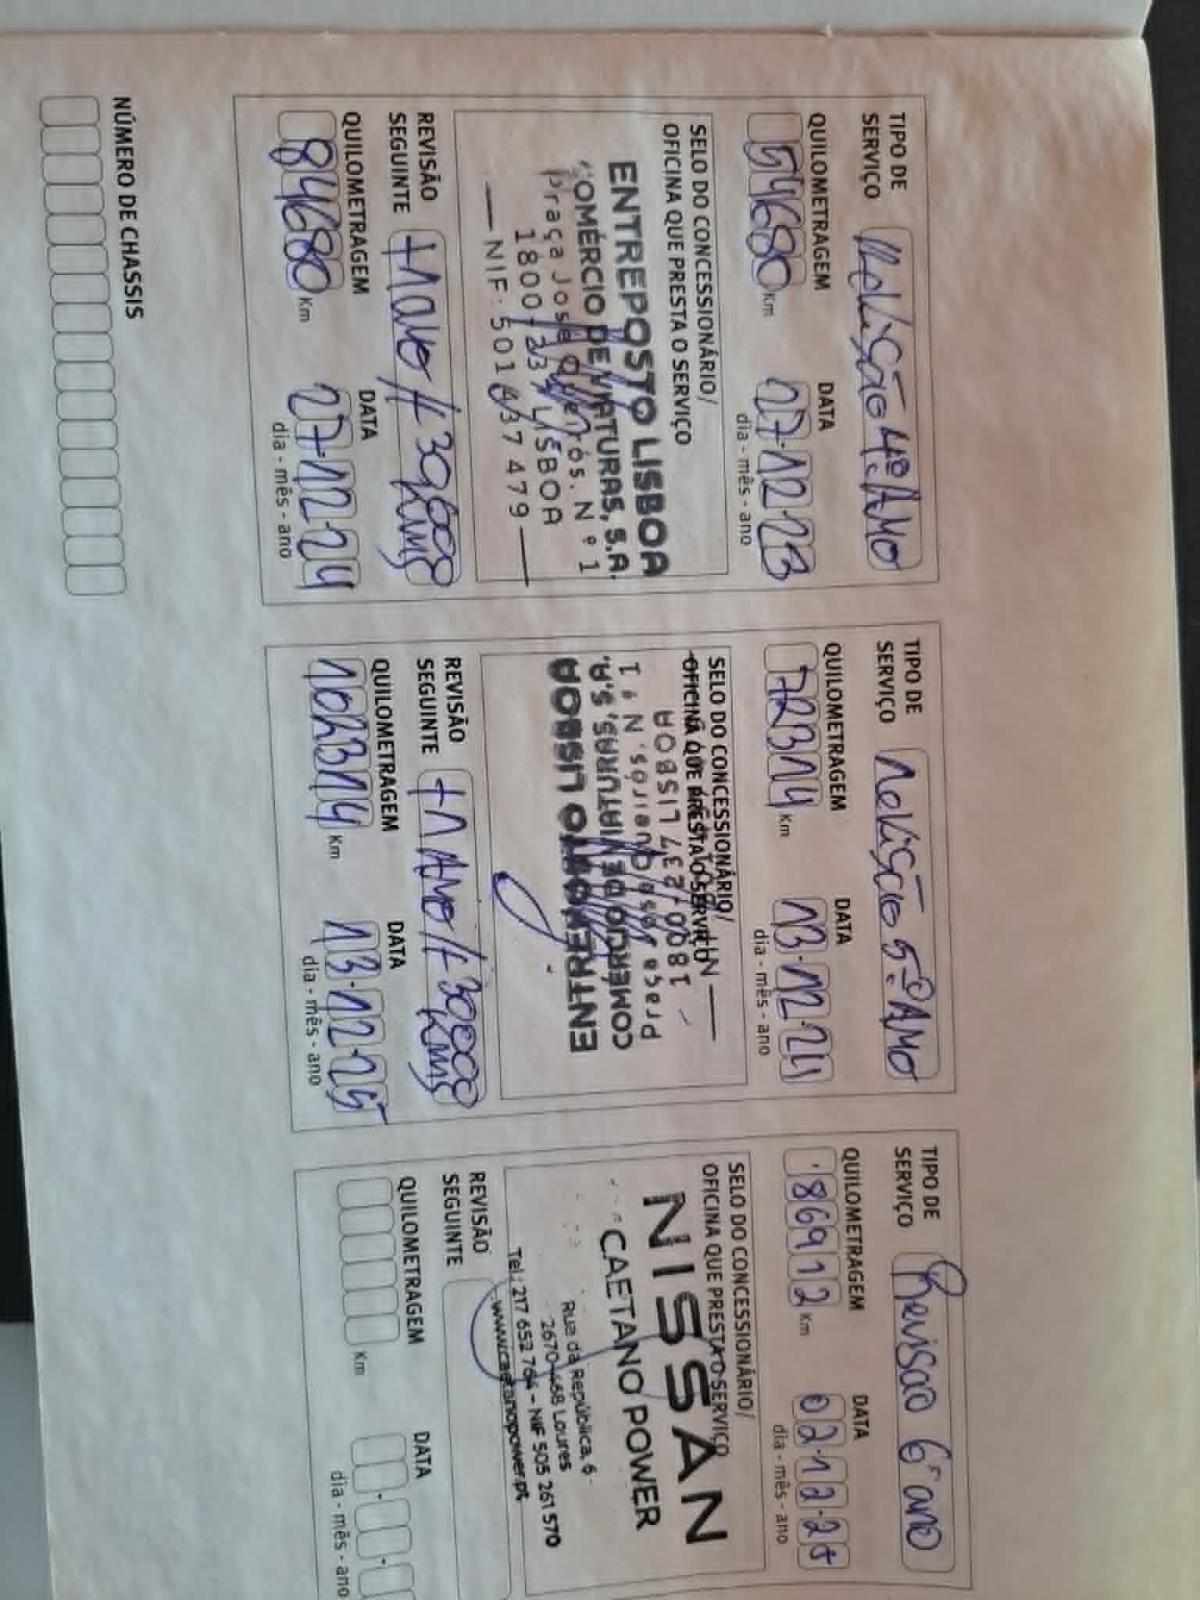 TIPO DE
SERVIÇO Revisão 4º Ano
QUILOMETRAGEM DATA
54680 Km 27-12-23
dia - mês - ano
SELO DO CONCESSIONÁRIO/
OFICINA QUE PRESTA O SERVIÇO
ENTREPOSTO LISBOA
COMÉRCIO DE VIATURAS, S.A.
Praça José Queirós, Nº 1
1800-237 LISBOA
NIF: 501 437 479
REVISÃO
SEGUINTE +1 ano / +30000 Kms
QUILOMETRAGEM DATA
84680 Km 27-12-24
dia - mês - ano
TIPO DE
SERVIÇO Revisão 5º Ano
QUILOMETRAGEM DATA
72314 Km 13-12-24
dia - mês - ano
SELO DO CONCESSIONÁRIO/
OFICINA QUE PRESTA O SERVIÇO
ENTREPOSTO LISBOA
COMÉRCIO DE VIATURAS, S.A.
Praça José Queirós, Nº 1
1800-237 LISBOA
REVISÃO
SEGUINTE +1 Ano / +30000 Kms
QUILOMETRAGEM DATA
102314 Km 13-12-25
dia - mês - ano
TIPO DE
SERVIÇO Revisao 6º ano
QUILOMETRAGEM DATA
86912 Km 02-12-25
dia - mês - ano
SELO DO CONCESSIONÁRIO/
OFICINA QUE PRESTA O SERVIÇO
NISSAN
CAETANO POWER
Rua da República, 6
2670-468 Loures
Tel.: 217 652 764 - NIF 505 261 570
www.caetanopower.pt
REVISÃO
SEGUINTE
QUILOMETRAGEM DATA
Km
dia - mês - ano
NÚMERO DE CHASSIS